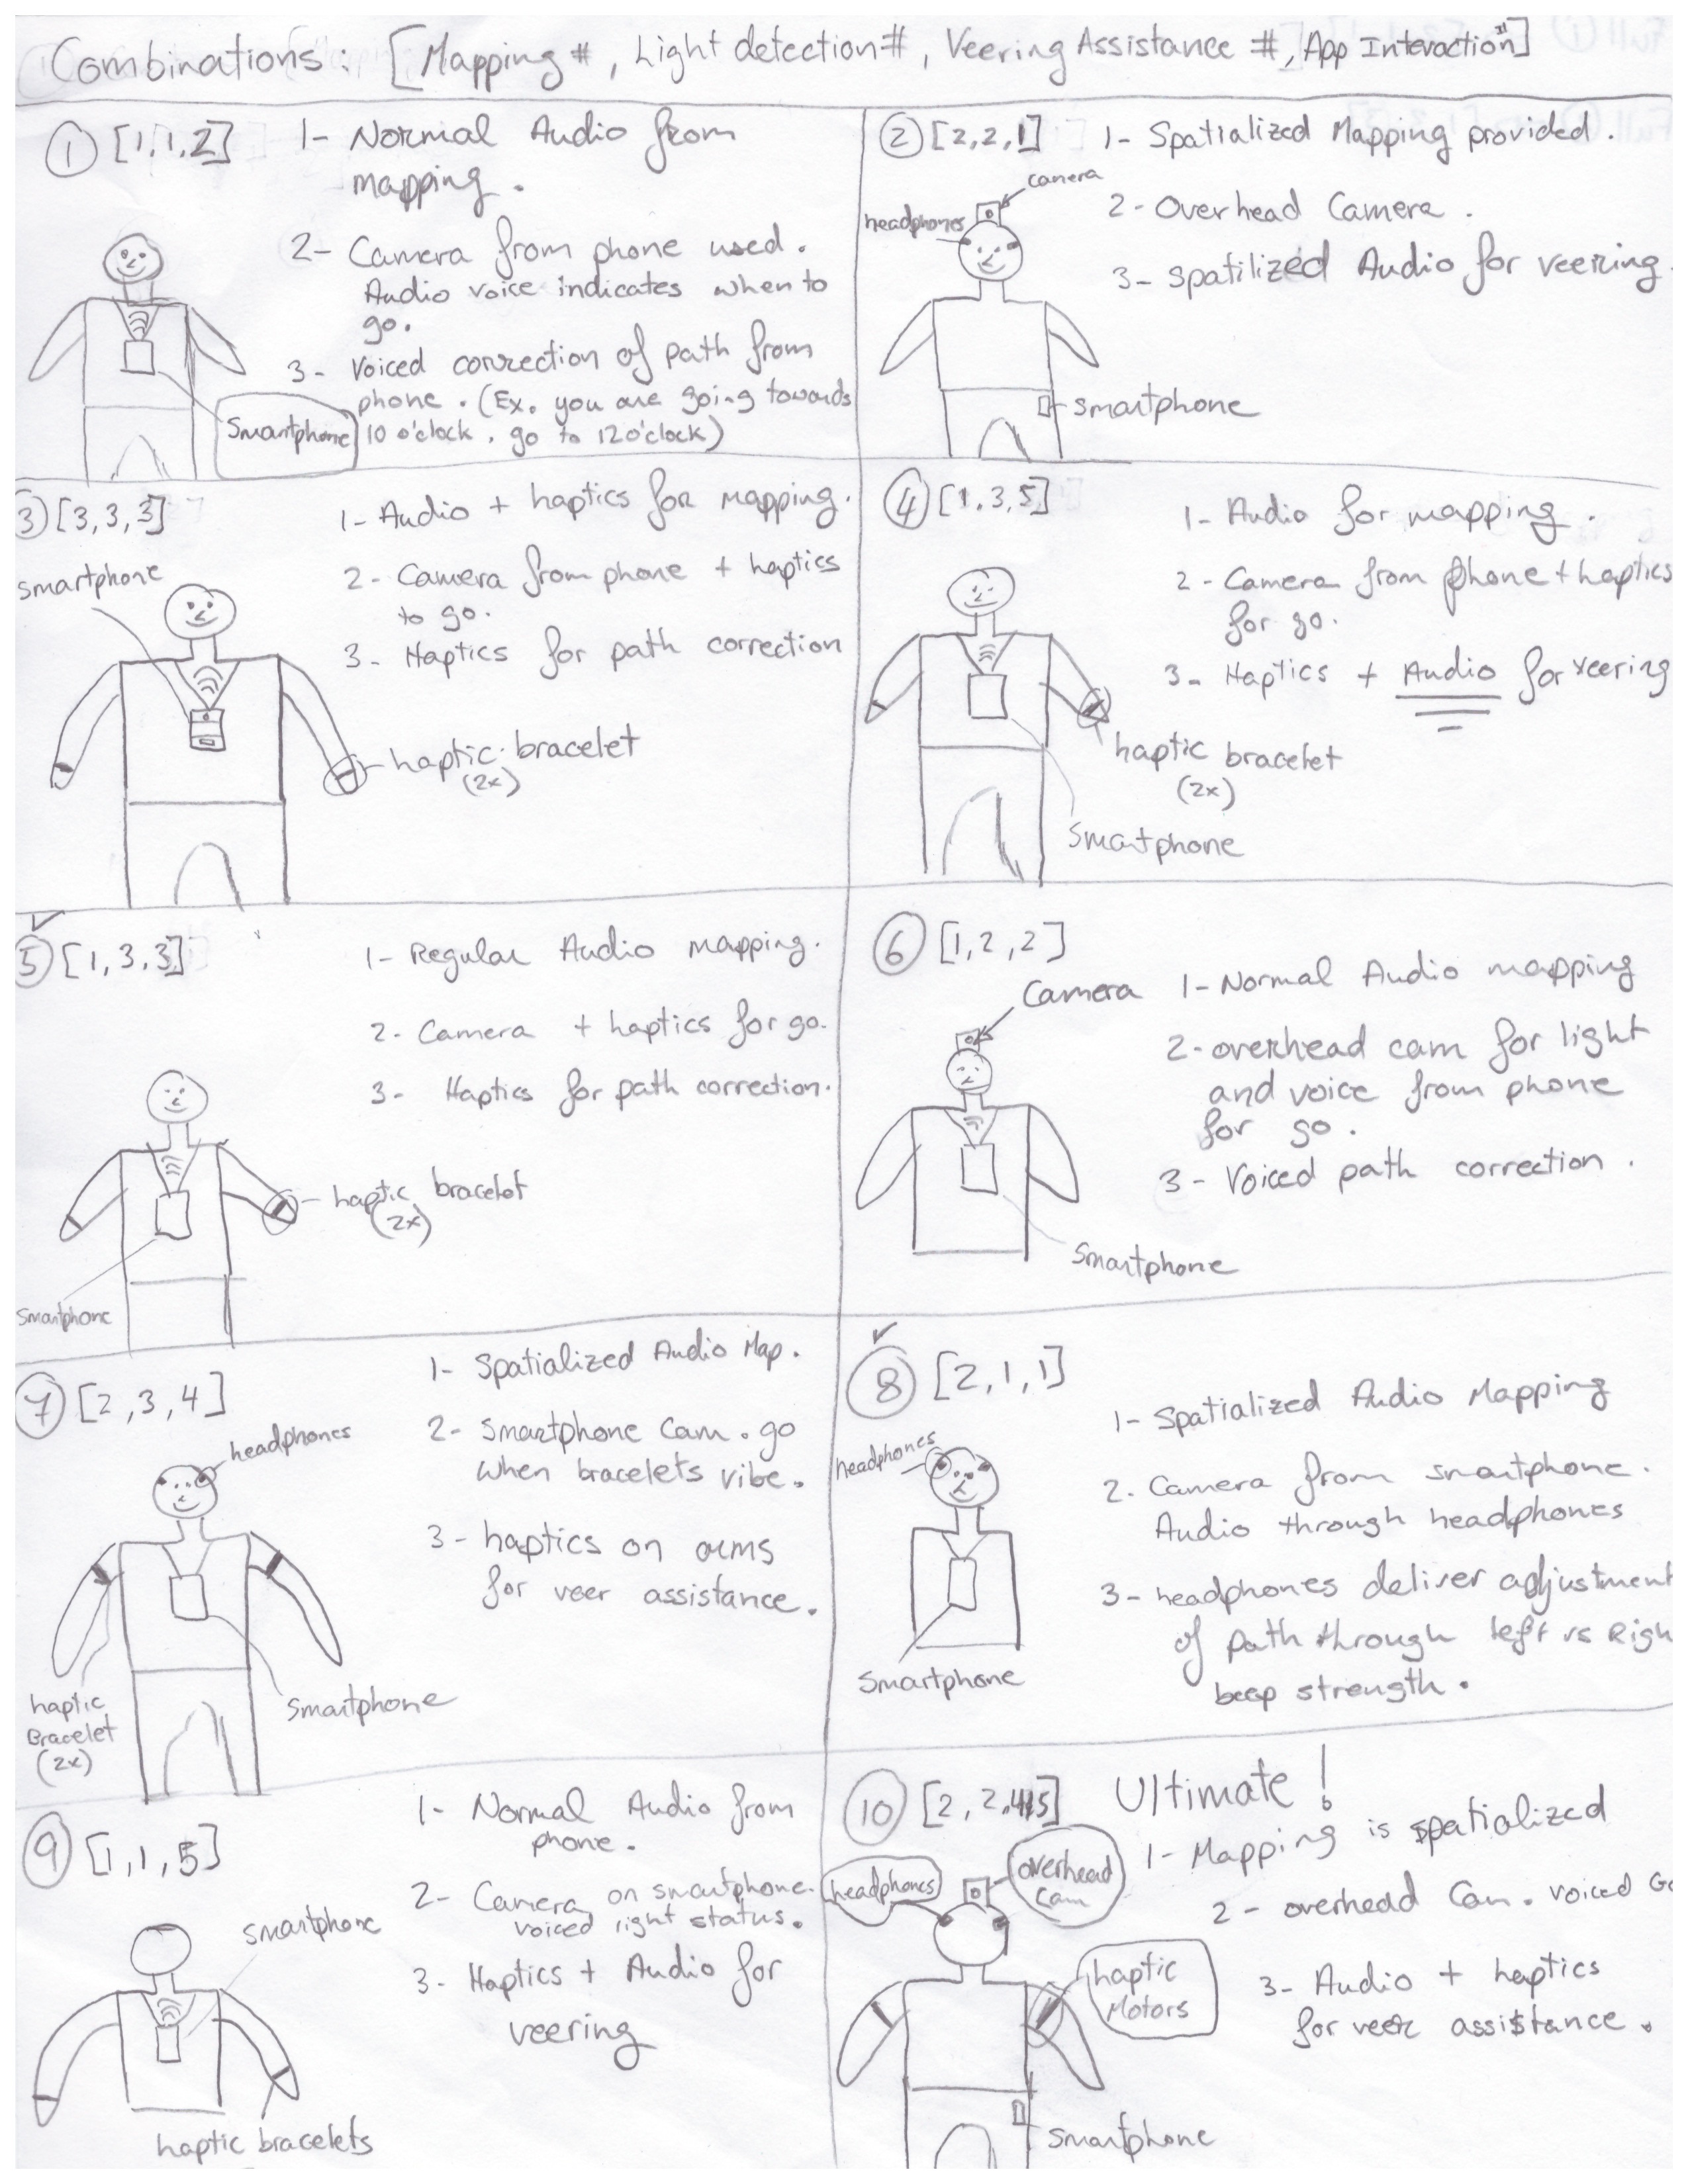 Combinations: [Mapping #, Light detection #, Veering Assistance #, App Interaction #]
① [1,1,2]
1- Normal Audio from
mapping.
2- Camera from phone used.
Audio voice indicates when to
go.
3- Voiced correction of path from
phone. (Ex. you are going towards
10 o'clock, go to 12 o'clock)
Smartphone
② [2,2,1]
1- Spatialized Mapping provided.
2- Overhead Camera.
3- Spatilized Audio for veering.
camera
headphones
smartphone
③ [3,3,3]
1- Audio + haptics for mapping.
2- Camera from phone + haptics
to go.
3- Haptics for path correction
smartphone
haptic bracelet
(2x)
④ [1,3,5]
1- Audio for mapping.
2- Camera from phone + haptics
for go.
3- Haptics + Audio for veering
haptic bracelet
(2x)
Smartphone
✓
⑤ [1,3,3]
1- Regular Audio mapping.
2- Camera + haptics for go.
3- Haptics for path correction.
haptic bracelet
(2x)
Smartphone
⑥ [1,2,2]
1- Normal Audio mapping
2- overhead cam for light
and voice from phone
for go.
3- Voiced path correction.
Camera
Smartphone
⑦ [2,3,4]
1- Spatialized Audio Map.
2- Smartphone Cam. go
when bracelets vibe.
3- haptics on arms
for veer assistance.
headphones
haptic
Bracelet
(2x)
Smartphone
✓
⑧ [2,1,1]
1- Spatialized Audio Mapping
2. Camera from smartphone.
Audio through headphones
3- headphones deliver adjustment
of path through left vs Righ
beep strength.
headphones
Smartphone
⑨ [1,1,5]
1- Normal Audio from
phone.
2- Camera on smartphone.
voiced right status.
3- Haptics + Audio for
veering
smartphone
haptic bracelets
⑩ [2,2,4+5] Ultimate!
1- Mapping is spatialized
2- overhead Cam. voiced Go
3- Audio + haptics
for veer assistance.
headphones
overhead
Cam
haptic
Motors
smartphone